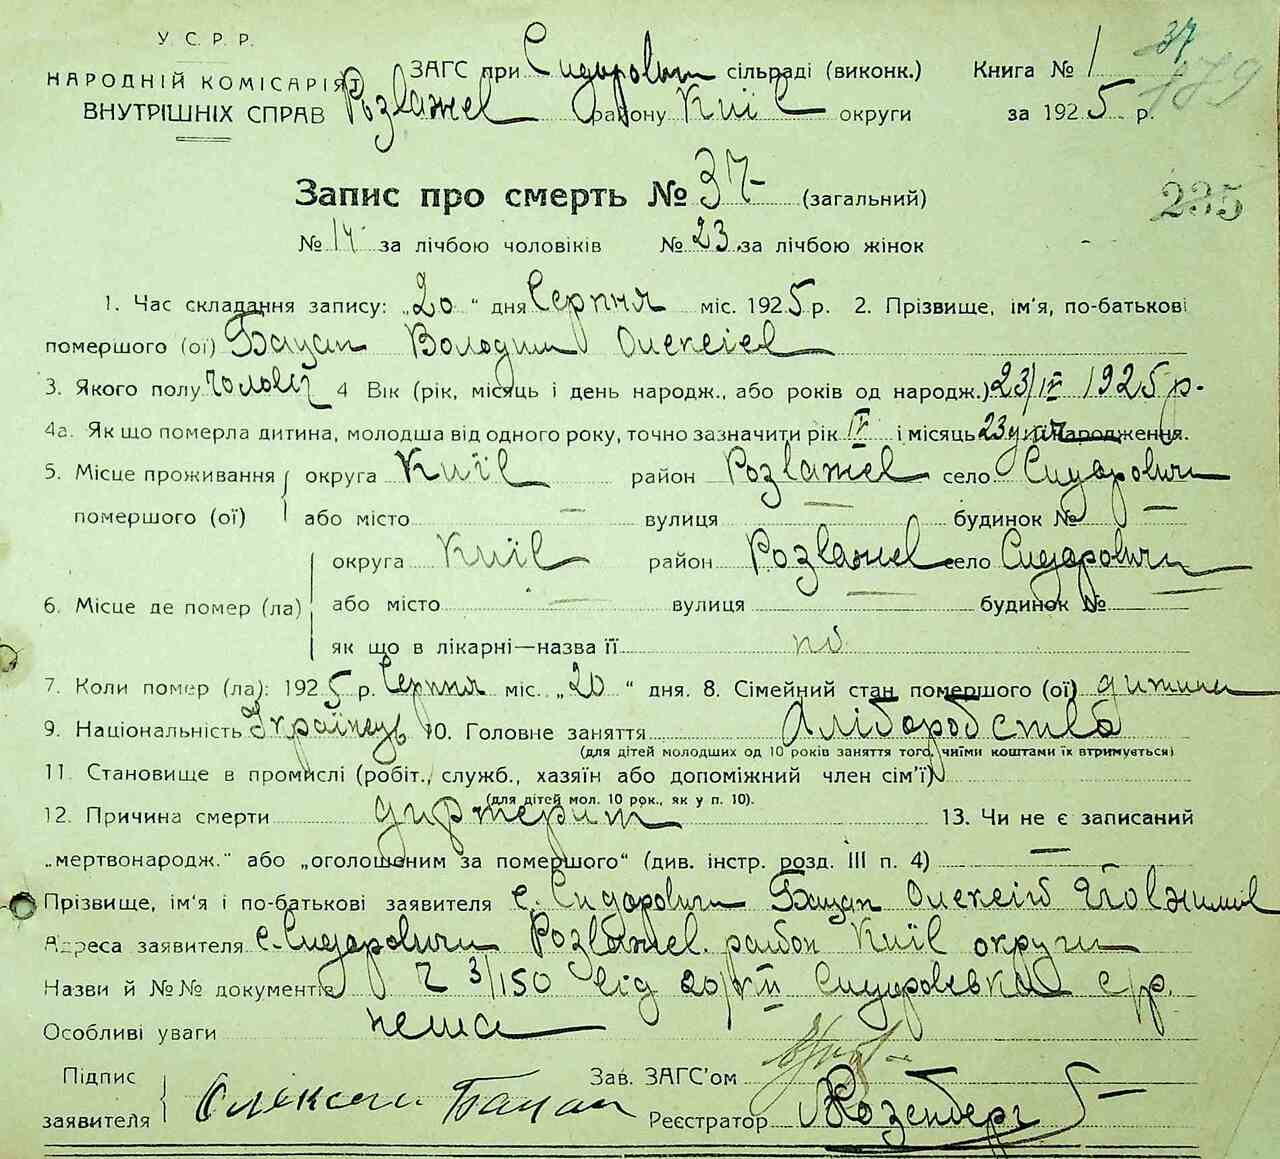 У. С. Р. Р.
НАРОДНІЙ КОМІСАРІЯТ
ВНУТРІШНІХ СПРАВ
ЗАГС при Сидорович сільраді (виконк.)
Розважев району Київ округи
Книга № 1
за 1925 р.
37
179
235
Запис про смерть № 37 (загальний)
№ 14 за лічбою чоловіків № 23 за лічбою жінок
1. Час складання запису: „20“ дня Серпня міс. 1925 р. 2. Прізвище, ім'я, по-батькові
помершого (ої) Бацан Володим Олексієв
3. Якого полу Чоловіч 4 Вік (рік, місяць і день народж., або років од народж.) 23/IV 1925 р.
4а. Як що померла дитина, молодша від одного року, точно зазначити рік IV і місяць 23 дня народження.
5. Місце проживання помершого (ої) округа Київ район Розважев село Сидоровичи
або місто — вулиця — будинок № —
6. Місце де помер (ла) округа Київ район Розважев село Сидоровичи
або місто — вулиця — будинок № —
як що в лікарні—назва її
7. Коли помер (ла): 1925 р. Серпня міс. „20“ дня. 8. Сімейний стан помершого (ої) дитина
9. Національність Українець 10. Головне заняття Хліборобство
(для дітей молодших од 10 років заняття того, чиїми коштами їх втримується)
11. Становище в промислі (робіт., служб., хазяїн або допоміжний член сім'ї)
(для дітей мол. 10 рок., як у п. 10).
12. Причина смерти дифтерит 13. Чи не є записаний
„мертвонародж.“ або „оголошеним за помершого“ (див. інстр. розд. III п. 4) —
Прізвище, ім'я і по-батькові заявителя с. Сидоровичи Бацан Олексій
Адреса заявителя с. Сидоровичи Розважев. район Київ округи
Назви й №№ документів 3/150 від 20/VIII Сидоровська с/р.
Особливі уваги нема
Підпис заявителя Олексей Бацан
Зав. ЗАГС'ом
Реєстратор Розенберг